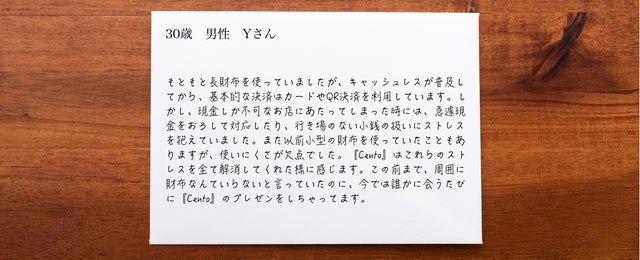 30歳　男性　Yさん
もともと長財布を使っていましたが、キャッシュレスが普及し
てから、基本的な決済はカードやQR決済を利用しています。し
かし、現金しか不可なお店にあたってしまった時には、急遽現
金をおろして対応したり、行き場のない小銭の扱いにストレス
を抱えていました。また以前小型の財布を使っていたこともあ
りますが、使いにくさが欠点でした。『Cento』はこれらのスト
レスを全て解消してくれた様に感じます。この前まで、周囲に
財布なんていらないと言っていたのに、今では誰かに会うたび
に『Cento』のプレゼンをしちゃってます。